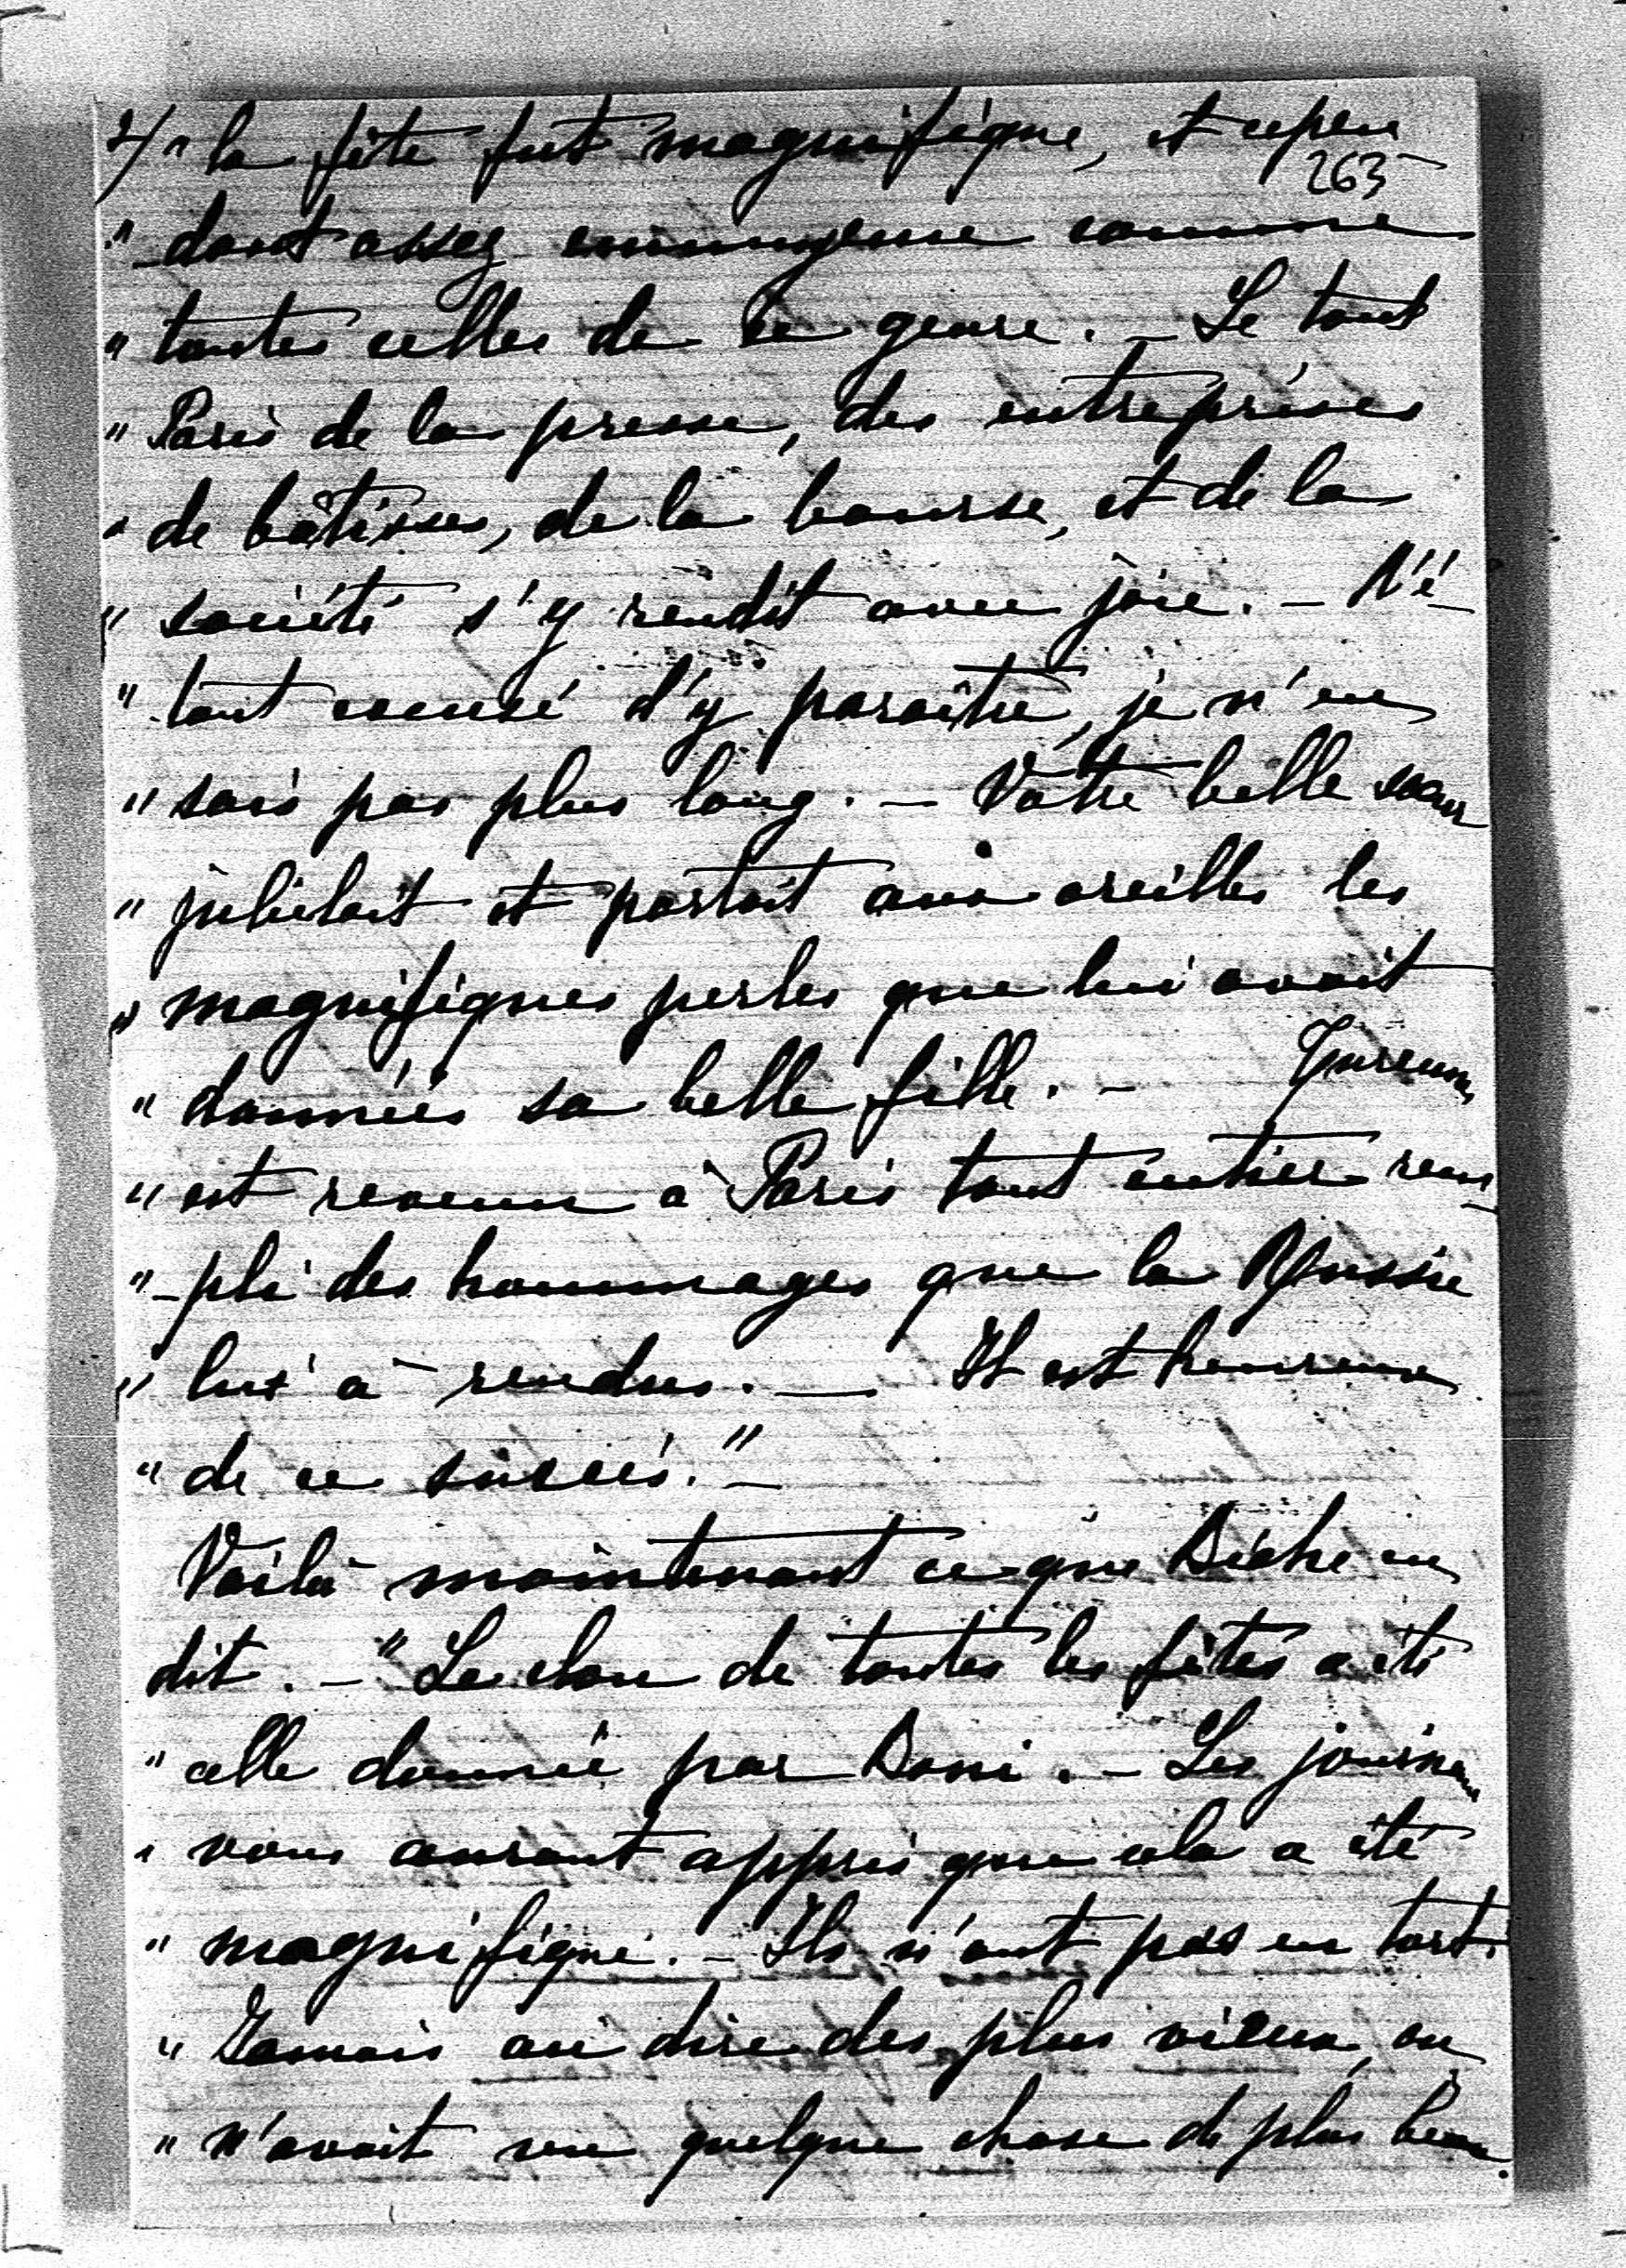 2/ " la fête fut magnifique, et cepen
263
" -dant assez ennuyeuse comme
" toutes celles de ce genre. - Le tout
" Paris de la presse, des entreprises
" de bâtisses, de la bourse, et de la
" société s'y rendit avec joie. - N'é-
" tant accusé d'y paraître, je n'en
" sais pas plus long. - Votre belle sœur
" jubilait et portait aux oreilles les
" magnifiques perles que lui avait
" données sa belle fille. - Turenne
" est revenu à Paris tout entier rem-
" -pli des hommages que la Russie
" lui à rendus. - Il est heureux
" de ce succès." -
Voilà maintenant ce que Biche en
dit. - "Le clou de toutes les fêtes a été
" celle donnée par Boni. - Les journaux
" vous auront appris que cela a été
" magnifique. - Ils n'ont pas eu tort.
" Jamais au dire des plus vieux, on
" n'avait vu quelque chose de plus beau.